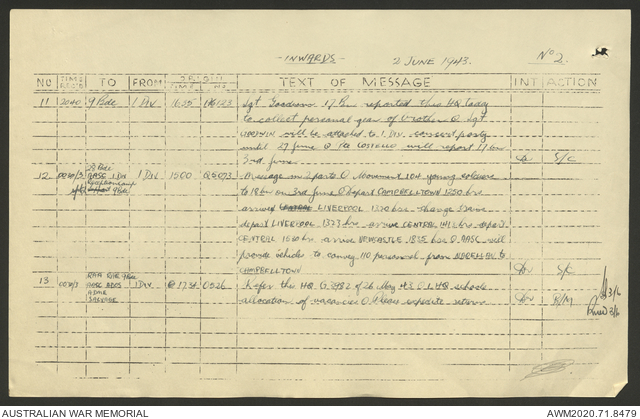 - INWARDS - 2 JUNE 1943. No 2.
NO TIME REC'D TO FROM ORIGIN TEXT OF MESSAGE INT ACTION
11 2040 9 Bde 1 Div 1635 Sgt. Goodwin 17 Bn reported this HQ today
to collect personal gear of brother O Sgt.
GOODWIN will be attached to 1 DIV. concert party
until 27 June O Pte COSTELLO will report 17 Bn
3rd June. S/C
12 1 Div 1500 Message in 2 parts O Movement 104 young soldiers
to 18 Bn on 3rd June O Depart CAMPBELLTOWN 1250 hrs.
arrive LIVERPOOL 1320 hrs. change trains
depart LIVERPOOL 1323 hrs arrive CENTRAL hrs depart
CENTRAL hrs arrive NEWCASTLE 1835 hrs O AASC will
provide vehicles to convey 110 personnel from to
CAMPBELLTOWN S/C
13 1 DIV 1734 Refer this HQ G.3982 of 26 May 43 O LHQ schools
allocation of vacancies O Please expedite return R/M
AASC ADOS
SALVAGE
3/6
3/6
AUSTRALIAN WAR MEMORIAL AWM2020.71.8479